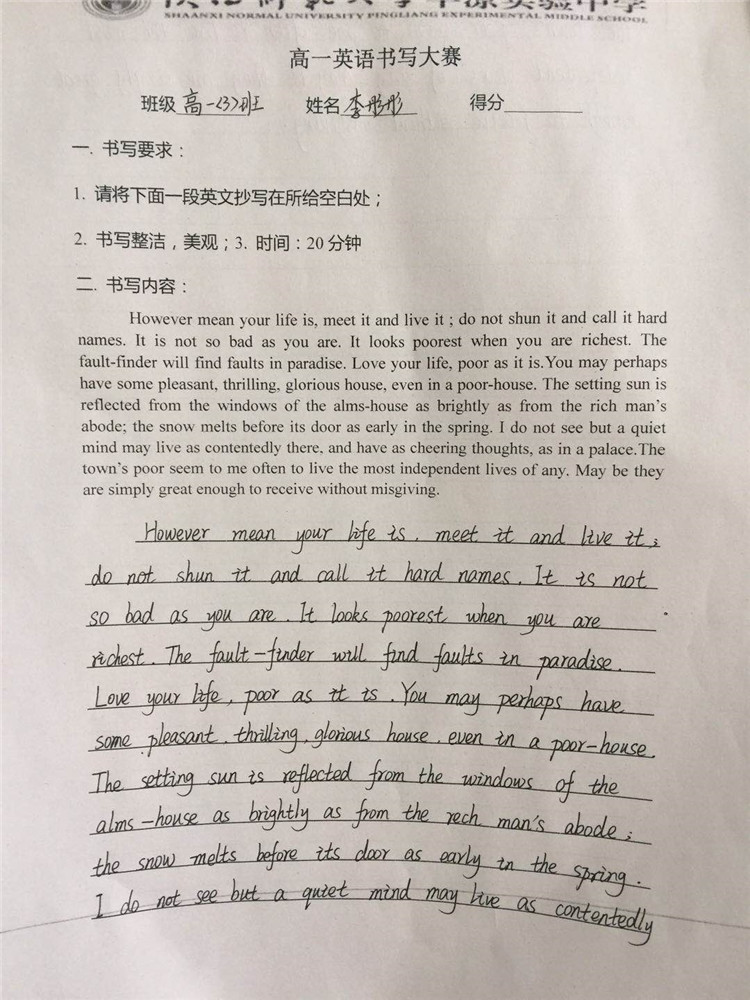 SHAANXI NORMAL UNIVERSITY PINGLIANG EXPERIMENTAL MIDDLE SCHOOL
高一英语书写大赛
班级 高一<3>班 姓名 李彤彤 得分
一. 书写要求：
1. 请将下面一段英文抄写在所给空白处；
2. 书写整洁，美观；3. 时间：20分钟
二. 书写内容：
However mean your life is, meet it and live it ; do not shun it and call it hard
names. It is not so bad as you are. It looks poorest when you are richest. The
fault-finder will find faults in paradise. Love your life, poor as it is.You may perhaps
have some pleasant, thrilling, glorious house, even in a poor-house. The setting sun is
reflected from the windows of the alms-house as brightly as from the rich man's
abode; the snow melts before its door as early in the spring. I do not see but a quiet
mind may live as contentedly there, and have as cheering thoughts, as in a palace.The
town's poor seem to me often to live the most independent lives of any. May be they
are simply great enough to receive without misgiving.
However mean your life is, meet it and live it;
do not shun it and call it hard names. It is not
so bad as you are. It looks poorest when you are
richest. The fault-finder will find faults in paradise.
Love your life, poor as it is. You may perhaps have
some pleasant, thrilling, glorious house, even in a poor-house.
The setting sun is reflected from the windows of the
alms-house as brightly as from the rech man's abode;
the snow melts before its door as early in the spring.
I do not see but a quiet mind may live as contentedly